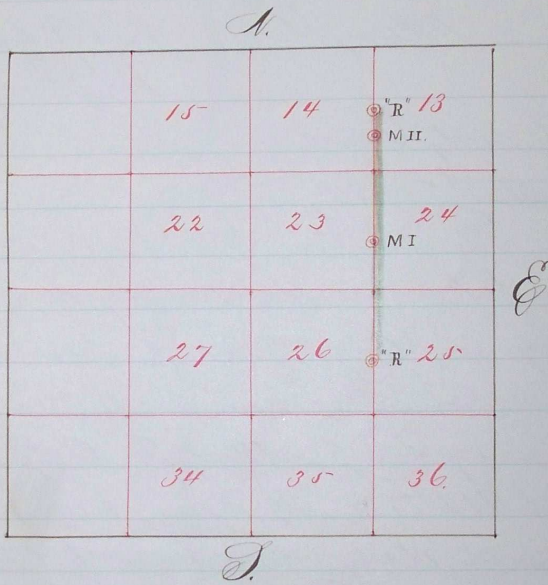 N.
15 14 "R" 13
M II.
22 23 24
M I
E
27 26 "R" 25
34 35 36.
S.